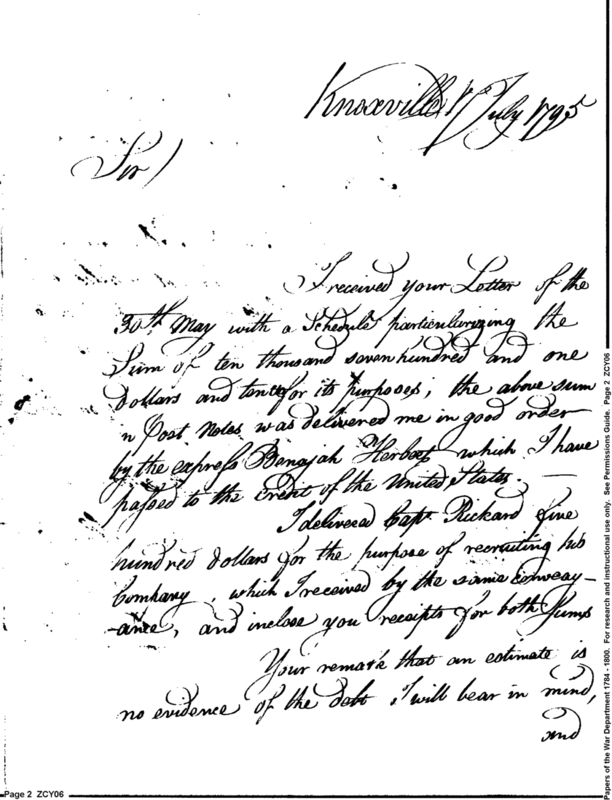 Knoxville 17 July 1795
Sir )
I received your Letter of the
30th May with a Schedule particularizing the
Sum of ten thousand seven hundred and one
dollars and for its purposes, the above sum
n Post Notes was delivered me in good order
by the express Benajah which I have
passed to the credit of the United States. —
I delivered Capt. Rickard five
hundred dollars for the purpose of recruiting his
Company, which I received by the same convey-
-ance, and inclose you receipts for both Sums
Your remark that an estimate is
no evidence of the debt I will bear in mind,
and
Page 2 ZCY06
Papers of the War Department 1784 - 1800. For research and instructional use only. See Permissions Guide. Page 2 ZCY06